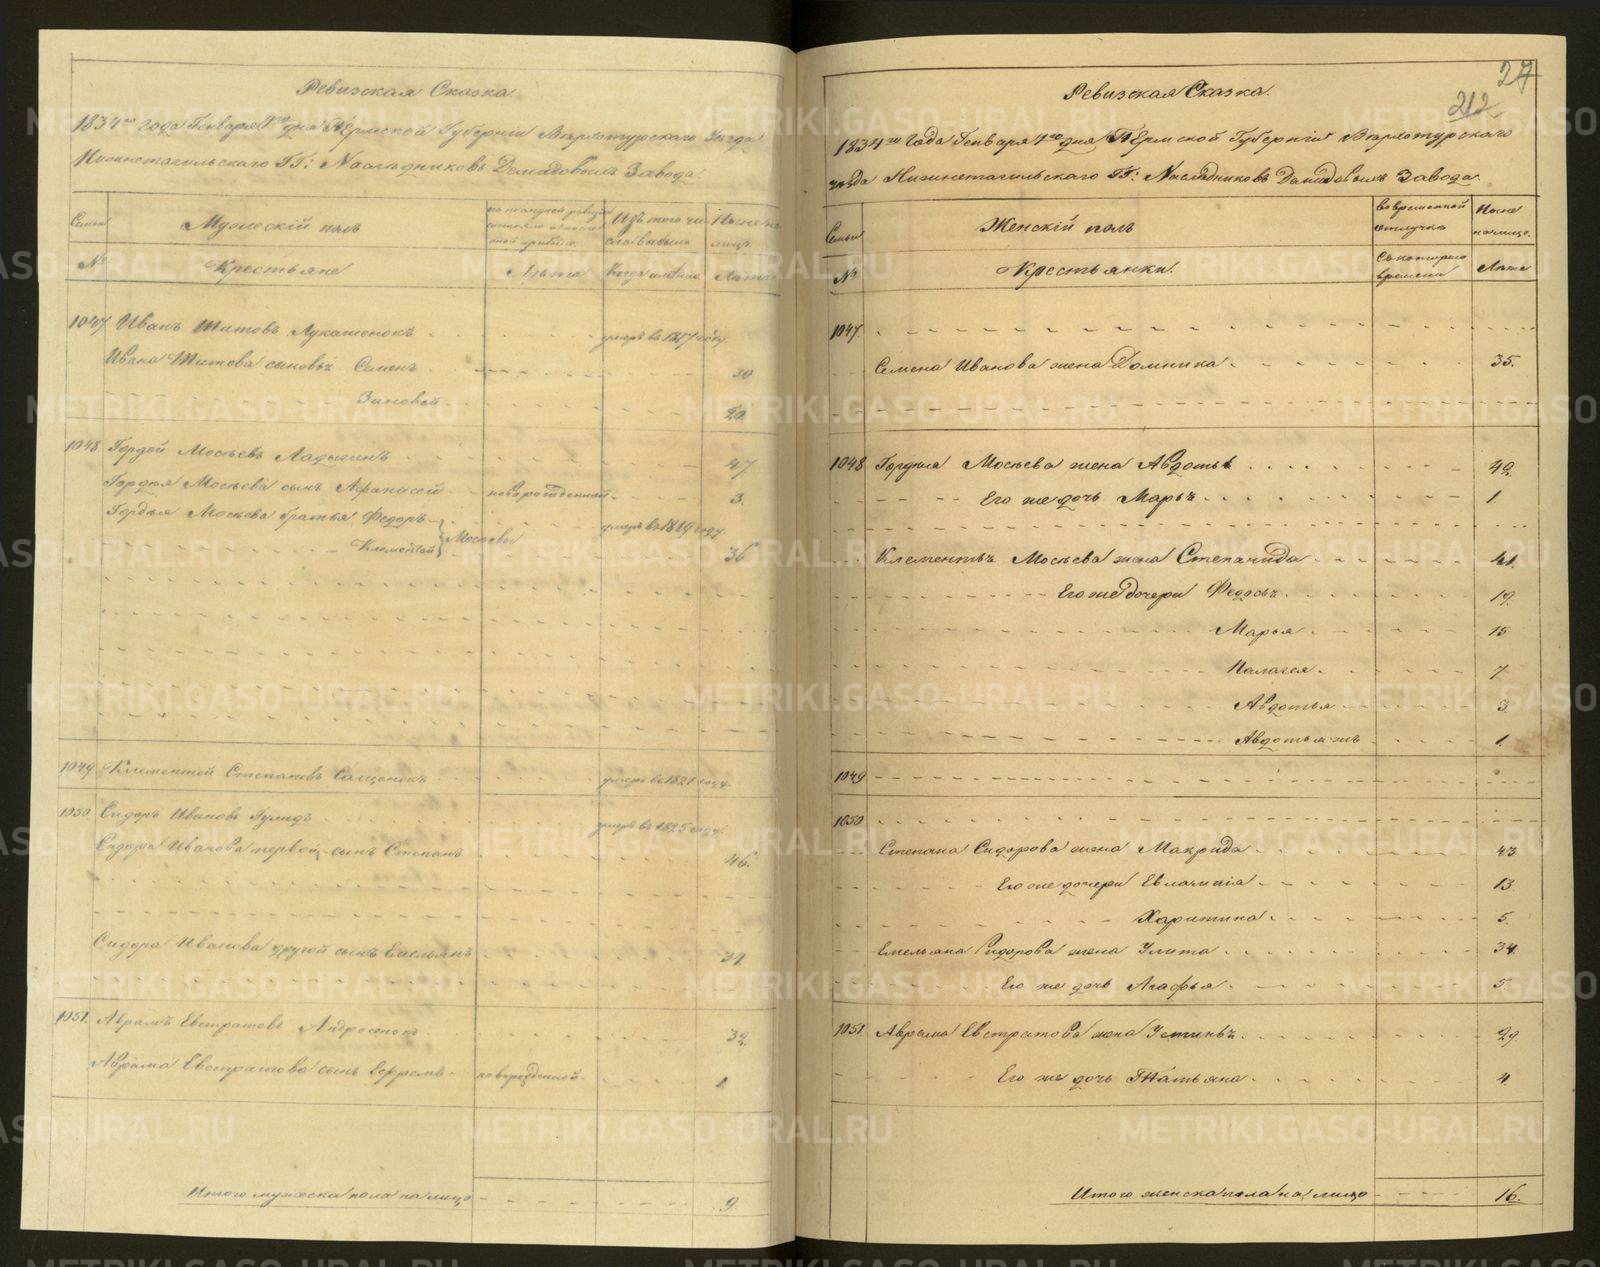 Ревизская Сказка.
1834го года Генваря 1го дня Пермской Губернiи Верхотурскаго Уезда
Нижнетагильскаго ГГ: Наследниковъ Демидовыхъ Завода
Семьи
Мужескiй полъ
по последней ревизiи состояло и после оной прибыло.
Изъ того числа выбыло
Ныне на лицо.
№
Крестьяне
Лета
Когда именно
Лета
1047 Иванъ Титовъ Лукашенокъ умеръ въ 1817 году
Ивана Титова сыновьи Семенъ 30
Зиновей 20
1048 Гордей Мосеевъ Ладыгинъ 47
Гордея Мосеева сынъ Афанасей новорожденный 3
Гордея Мосеева братья Федоръ умеръ въ 1819 году
Клементей Мосеевы 36
1049 Клементей Степановъ умеръ въ 1821 году
1050 Сидоръ Ивановъ умеръ въ 1825 году
Сидора Иванова первой сынъ Степанъ 46.
Сидора Иванова другой сынъ Емельянъ 31
1051. Аврамъ Евстратовъ 32
Аврама Евстратова сынъ Ефремъ новорожденной 1
Итого мужеска пола на лицо 9
27
212
Ревизская Сказка.
1834го года Генваря 1го дня Пермской Губернiи Верхотурскаго
уезда Нижнетагильскаго ГГ: Наследниковъ Демидовыхъ Завода.
Семьи
Женскiй полъ
Во временной отлучке
Ныне на лицо.
№
Крестьянки.
Съ котораго времени
Лета
1047.
Семена Иванова жена Домника. 35.
1048 Гордея Мосеева жена Авдотья 42
Его же дочь Марья 1.
Клементья Мосеева жена Степанида 41.
Его же дочери Федосья 19.
Марья 15
Палагея 7
Авдотья 3
Авдотья жъ 1
1049
1050
Степана Сидорова жена Макрида 43
Его же дочери Евлампiя 13
Харитина 5.
Емельяна Сидорова жена Улита 34
Его же дочь Агафья 5
1051. Аврама Евстратова жена Устинья 29
Его же дочь Татьяна 4.
Итого женска пола на лицо 16.
METRIKI.GASO-URAL.RU